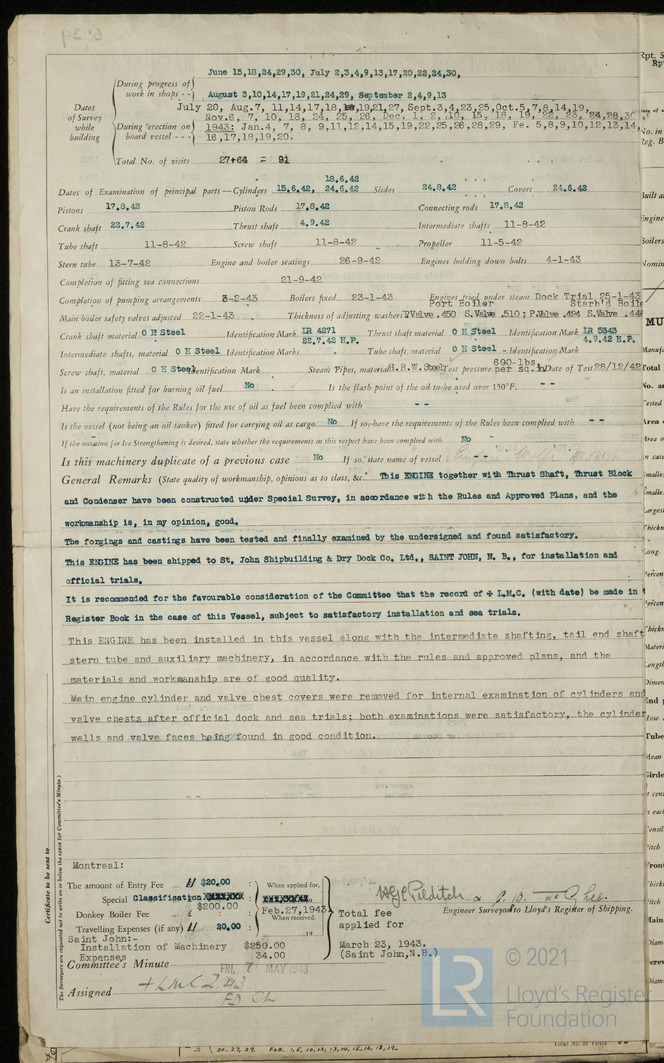 June 15,18,24,29,30, July 2,3,4,9,13,17,20,22,24,30,
During progress of work in shops - - August 3,10,14,17,19,21,24,29, September 2,4,9,13
Dates of Survey while building
July 20, Aug.7, 11,14,17,18,19,21,27, Sept.3,4,23,25,Oct.5,7,8,14,19,
Nov.6, 7, 10, 18, 24, 25, 28, Dec. 1, 2, 10, 15, 18, 19, 22, 23, 24,28,30
During erection on board vessel - - - 1943: Jan.4, 7, 8, 9,11,12,14,15,19,22,25,26,28,29, Fe. 5,8,9,10,12,13,14,
16,17,18,19,20.
Total No. of visits 27+64 = 91
18.6.42
Dates of Examination of principal parts—Cylinders 15.6.42, 24.6.42 Slides 24.8.42 Covers 24.6.42
Pistons 17.8.42 Piston Rods 17.8.42 Connecting rods 17.8.42
Crank shaft 22.7.42 Thrust shaft 4.9.42 Intermediate shafts 11-8-42
Tube shaft 11-8-42 Screw shaft 11-8-42 Propeller 11-5-42
Stern tube 13-7-42 Engine and boiler seatings 26-9-42 Engines holding down bolts 4-1-43
Completion of fitting sea connections 21-9-42
Completion of pumping arrangements 3-2-43 Boilers fixed 23-1-43 Engines tried under steam Dock Trial 25-1-43
Port Boiler Starb'd Boile
Main boiler safety valves adjusted 22-1-43 Thickness of adjusting washers P.Valve .450 S.Valve .510; P.Valve .494 S.Valve .448
Crank shaft material O H Steel Identification Mark LR 4271 22.7.42 H.P. Thrust shaft material O H Steel Identification Mark LR 5343 4.9.42 H.P.
Intermediate shafts, material O H Steel Identification Marks Tube shaft, material O H Steel Identification Mark
Screw shaft, material O H Steel Identification Mark Steam Pipes, material H.R.W.Steel Test pressure 600-lbs. per sq.in Date of Test 28/12/42
Is an installation fitted for burning oil fuel No Is the flash point of the oil to be used over 150°F. - -
Have the requirements of the Rules for the use of oil as fuel been complied with - -
Is the vessel (not being an oil tanker) fitted for carrying oil as cargo No If so, have the requirements of the Rules been complied with - -
If the notation for Ice Strengthening is desired, state whether the requirements in this respect have been complied with No
Is this machinery duplicate of a previous case No If so, state name of vessel - -
General Remarks (State quality of workmanship, opinions as to class, &c. This ENGINE together with Thrust Shaft, Thrust Block
and Condenser have been constructed under Special Survey, in accordance with the Rules and Approved Plans, and the
workmanship is, in my opinion, good.
The forgings and castings have been tested and finally examined by the undersigned and found satisfactory.
This ENGINE has been shipped to St. John Shipbuilding & Dry Dock Co. Ltd., SAINT JOHN, N. B., for installation and
official trials.
It is recommended for the favourable consideration of the Committee that the record of + L.M.C. (with date) be made in
Register Book in the case of this Vessel, subject to satisfactory installation and sea trials.
This ENGINE has been installed in this vessel along with the intermediate shafting, tail end shaft
stern tube and auxiliary machinery, in accordance with the rules and approved plans, and the
materials and workmanship are of good quality.
Main engine cylinder and valve chest covers were removed for internal examination of cylinders and
valve chests after official dock and sea trials; both examinations were satisfactory, the cylinder
walls and valve faces being found in good condition.
Certificate to be sent to
The Surveyors are requested not to write on or below the space for Committee's Minute.)
Montreal:
The amount of Entry Fee ... $20.00 : When applied for,
Special Classification $200.00 : Feb.27,1943
Donkey Boiler Fee ... £ : When received,
Travelling Expenses (if any) 20.00 : 19
Total fee applied for
March 23, 1943.
(Saint John,N.B.)
Engine Surveyor to Lloyd's Register of Shipping.
Saint John:-
Installation of Machinery $250.00
Expenses 34.00
Committee's Minute FRI. 7 MAY 1943
Assigned + LMC 2.43
FD CL
© 2021
LR
Lloyd's Register
Foundation